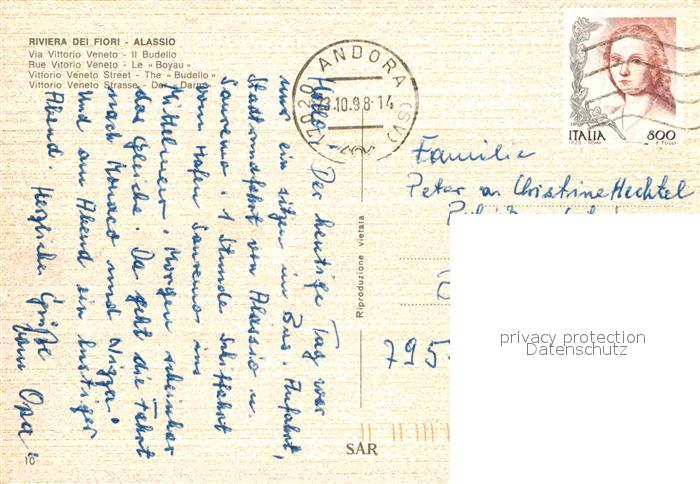 RIVIERA DEI FIORI - ALASSIO
Via Vittorio Veneto - Il Budello
Rue Vitorio Veneto - Le «Boyau»
Vittorio Veneto Street - The «Budello»
Vittorio Veneto Strasse - Der «Darm»
17020 ANDORA (SV)
13.10.98-14
ITALIA 800
I.P.Z.S. - ROMA F. TULLI
Hallo! Der heutige Tag war
nur ein sitzen im Bus. Anfahrt,
Stadtrundfahrt von Alassio u.
Sanremo. 1 Stunde Schiffahrt
vom Hafen Sanremo ins
Mittelmeer. Morgen scheinbar
das gleiche. Da geht die Fahrt
nach Monaco und Nizza.
Und am Abend ein lustiger
Abend. Herzliche Grüße
vom Opa.
Familie
Peter u. Christine Hechtel
795
Riproduzione vietata
SAR
10
privacy protection
Datenschutz